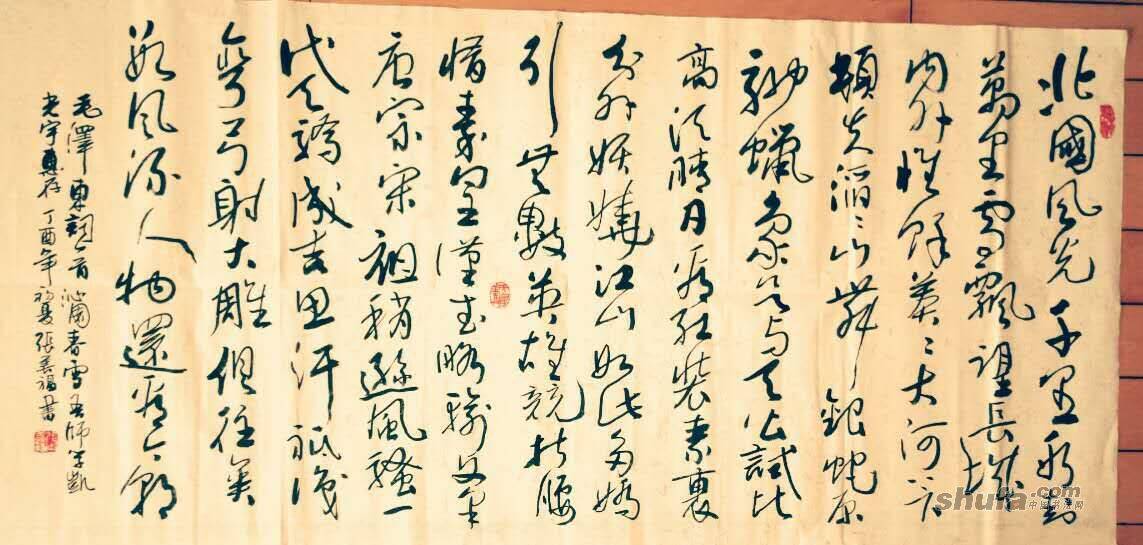 北國風光千里冰封
萬里雪飄望長城
內外惟餘莽〻大河上下
頓失滔〻山舞銀蛇原
馳蠟象欲與天公試比
高須晴日看紅裝素裹
分外妖嬈江山如此多嬌
引無數英雄競折腰
惜秦皇漢武略輸文采
唐宗宋祖稍遜風騷一
代天驕成吉思汗祇識
彎弓射大雕俱往矣
數風流人物還看今朝
毛澤東詞一首沁園春雪吾師
惠存丁酉年初夏張善福書
shufa.com
中国书法网